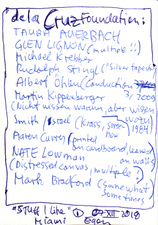 de la Cruz Foundation:
TAUBA AUERBACH
GLEN LIGNON (multiple!!)
Michael Krebber
Rudolph Stingl ("Silver tapestry
Albert Öhlen (Conduction
Martin Kippenberger 3/2009)
(Nicht wissen warum aber wissen
Smith
Aaron Curry (painted
on cardboard,
on wall)
NATE LOWMAN
(Distressed canvas/multiple?)
Mark Bradford (somewhat
sometimes)
*STUFF I like 2018
Miami